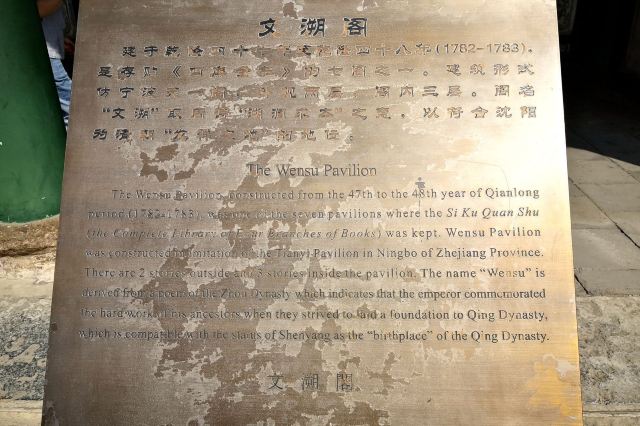 文溯阁
建于乾隆四十七年至乾隆四十八年(1782-1783),
是存贮《四库全书》的七阁之一。建筑形式
仿宁波天一阁,外观两层,阁内三层。阁名
"文溯"取 "溯涧求本"之意,以符合沈阳
为清朝"发祥之地"的地位。
The Wensu Pavilion
The Wensu Pavilion, constructed from the 47th to the 48th year of Qianlong
period (1782-1783), was one of the seven pavilions where the Si Ku Quan Shu
(the Complete Library of Four Branches of Books) was kept. Wensu Pavilion
was constructed in imitation of the Tianyi Pavilion in Ningbo of Zhejiang Province.
There are 2 stories outside and 3 stories inside the pavilion. The name "Wensu" is
derived from a poem of the Zhou Dynasty which indicates that the emperor commemorated
the hard work of his ancestors when they strived to laid a foundation to Qing Dynasty,
which is compatible with the status of Shenyang as the "birthplace" of the Qing Dynasty.
文溯閣